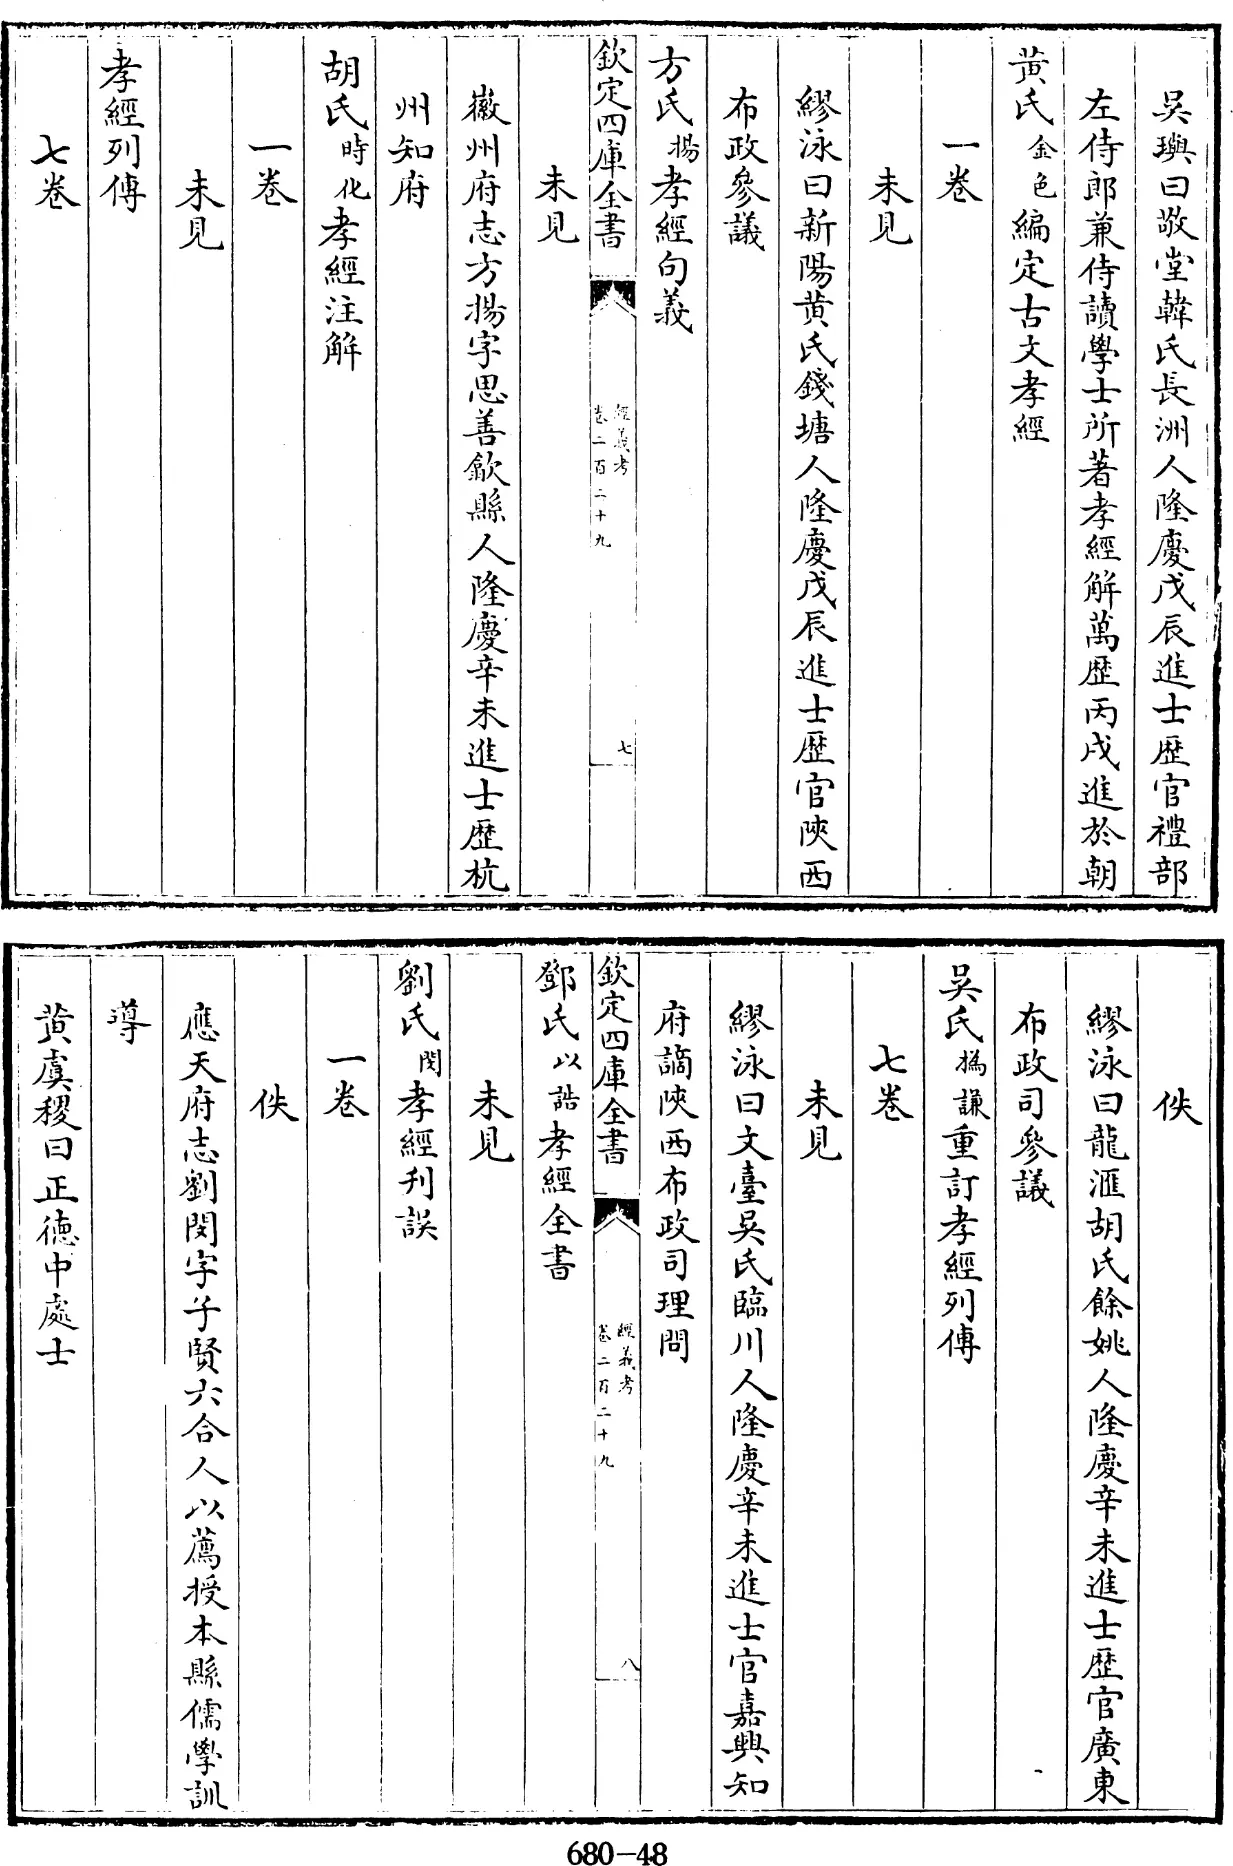 吳璵曰敬堂韓氏長洲人隆慶戊辰進士歴官禮部
左侍郎兼侍讀學士所著孝經解萬歴丙戌進於朝
黄氏金色編定古文孝經
一卷
未見
繆泳曰新陽黄氏錢塘人隆慶戊辰進士歴官陜西
布政參議
方氏揚孝經句義
欽定四庫全書
經義考
卷二百二十九
七
未見
徽州府志方揚字思善歙縣人隆慶辛未進士歴杭
州知府
胡氏時化孝經注解
一卷
未見
孝經列傳
七卷
佚
繆泳曰龍滙胡氏餘姚人隆慶辛未進士歴官廣東
布政司參議
吳氏撝謙重訂孝經列傳
七卷
未見
繆泳曰文臺吳氏臨川人隆慶辛未進士官嘉興知
府謫陜西布政司理問
欽定四庫全書
經義考
卷二百二十九
八
鄧氏以誥孝經全書
未見
劉氏閔孝經刋誤
一卷
佚
應天府志劉閔字子賢六合人以薦授本縣儒學訓
導
黄虞稷曰正德中處士
680-48